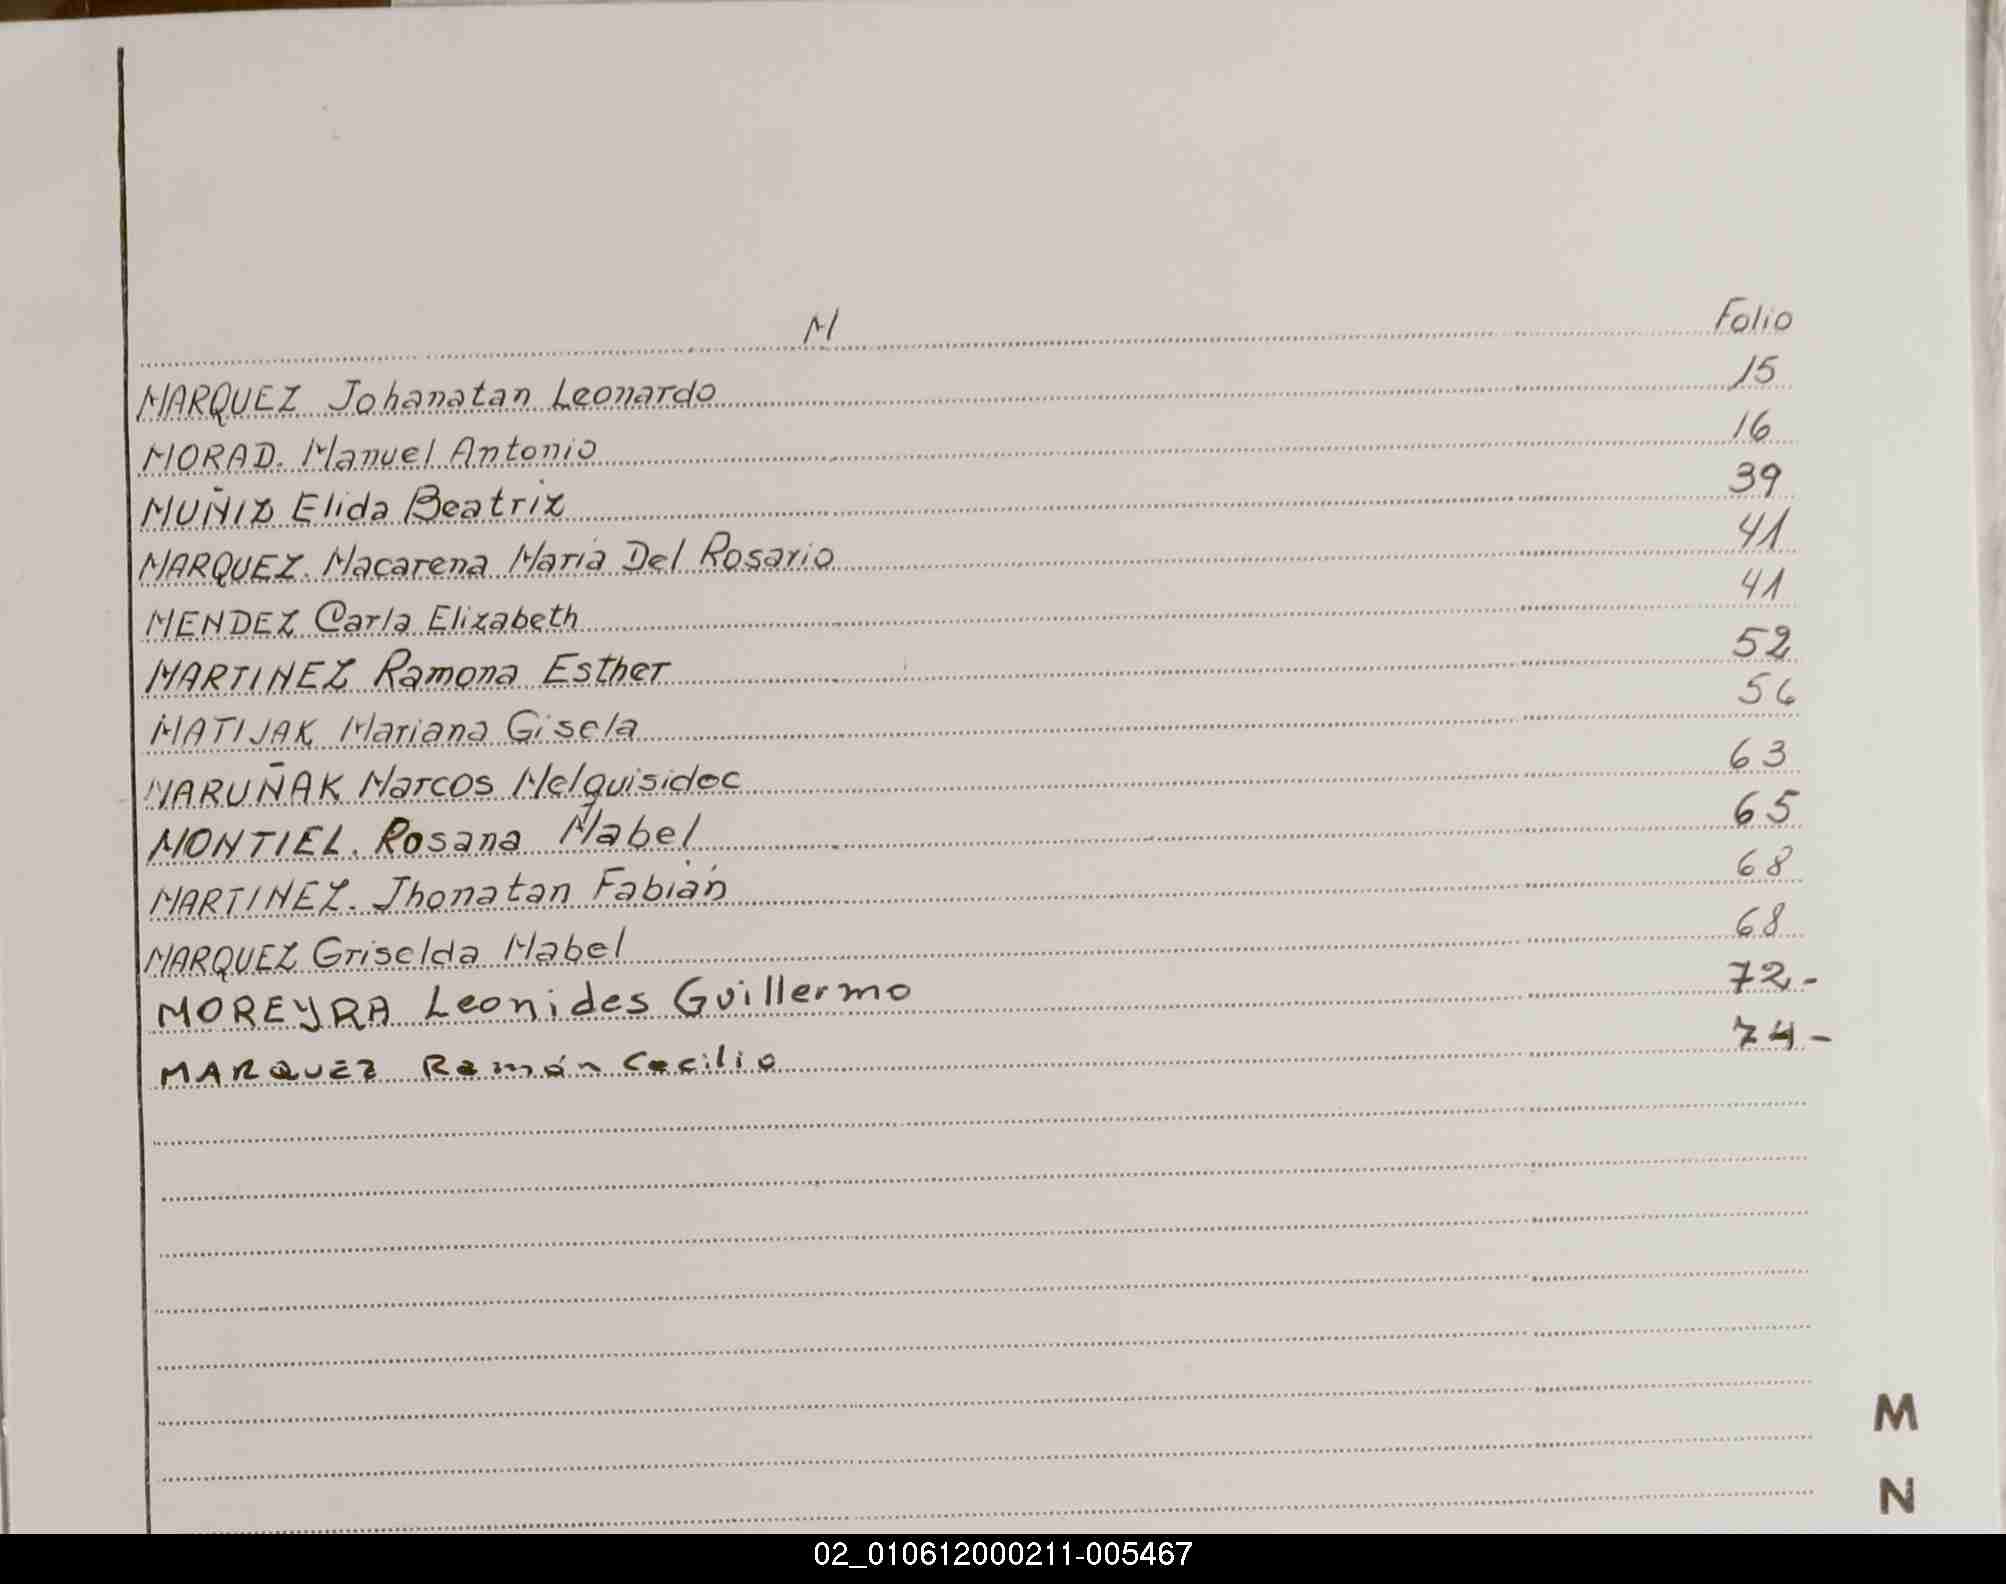 M Folio
MARQUEZ Johanatan Leonardo 15
MORAD. Manuel Antonio 16
MUÑIZ Elida Beatriz 39
MARQUEZ. Macarena María Del Rosario 41
MENDEZ Carla Elizabeth 41
MARTINEZ Ramona Esther 52
MATIJAK Mariana Gisela 56
MARUÑAK Marcos Melquisidec 63
MONTIEL. Rosana Mabel 65
MARTINEZ. Jhonatan Fabián 68
MARQUEZ Griselda Mabel 68
MOREYRA Leonides Guillermo 72-
MARQUEZ Ramón Cecilio 74-
M
N
02_010612000211-005467